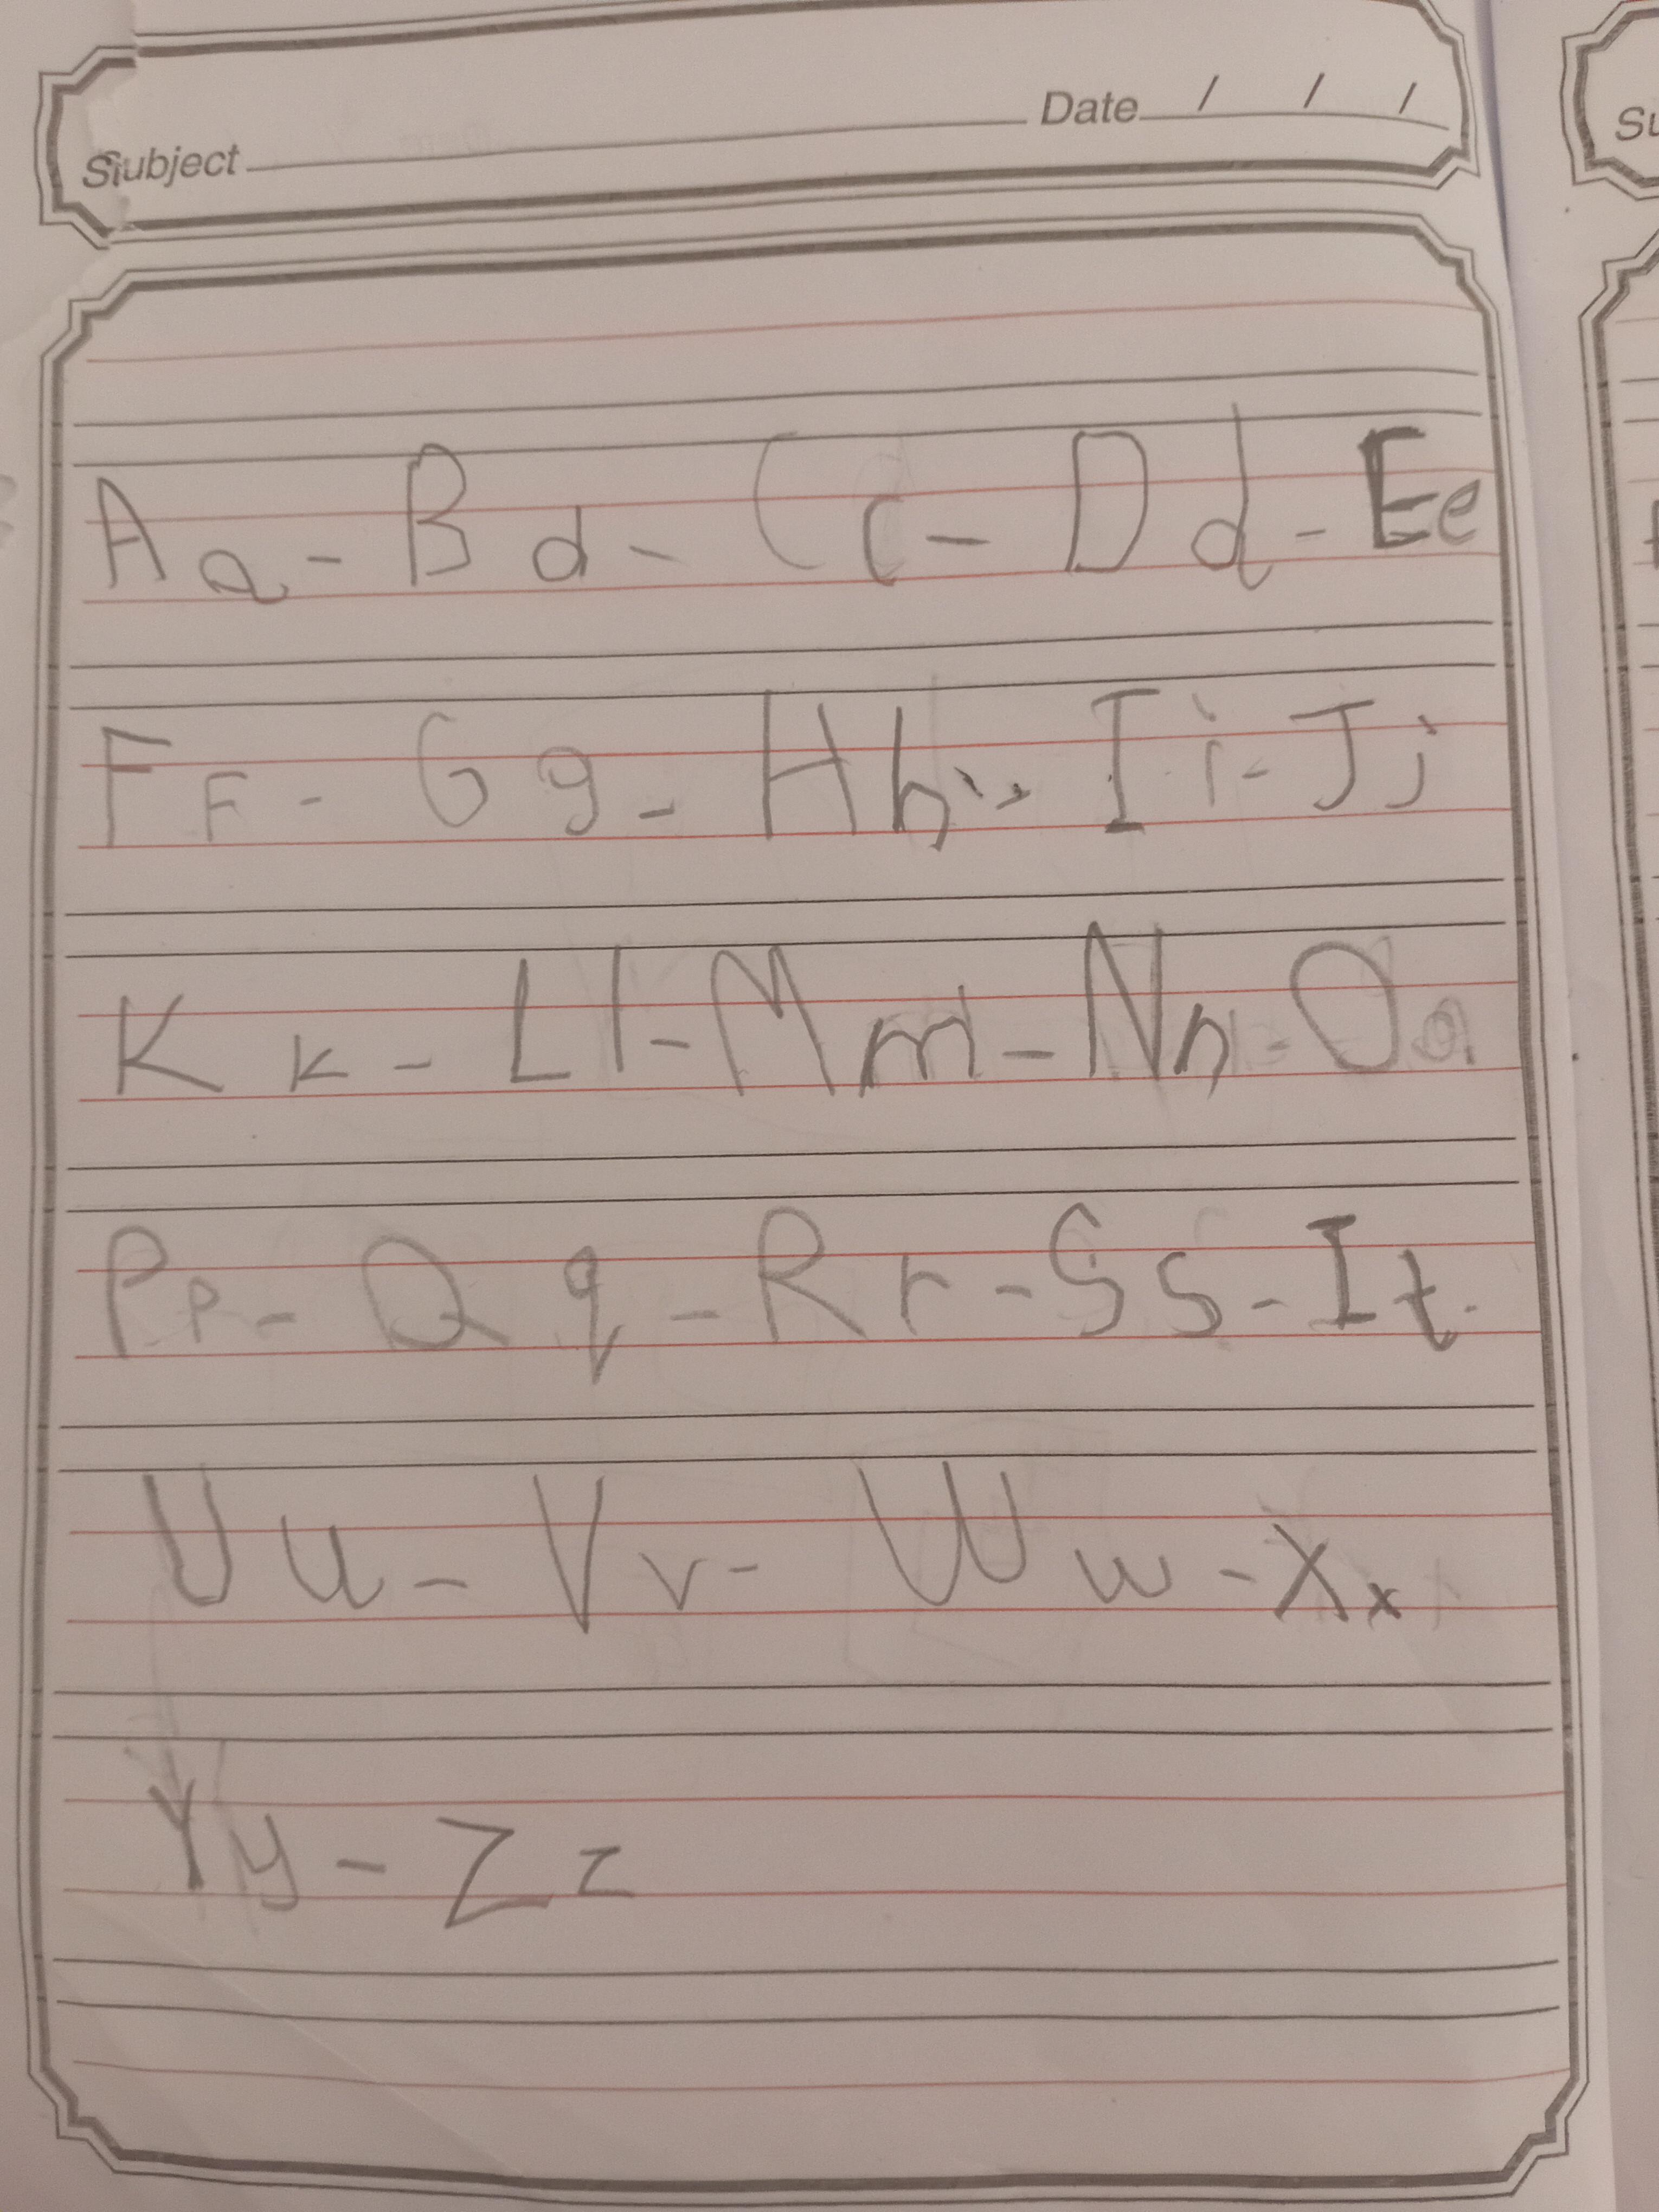 Subject Date / / /
Aa - Bd - Cc - Dd - Ee
FF - Gg - Hh - Ii - Jj
Kk - Ll - Mm - Nn - Oo
Pp - Qq - Rr - Ss - It
Uu - Vv - Ww - Xx
Yy - Zz